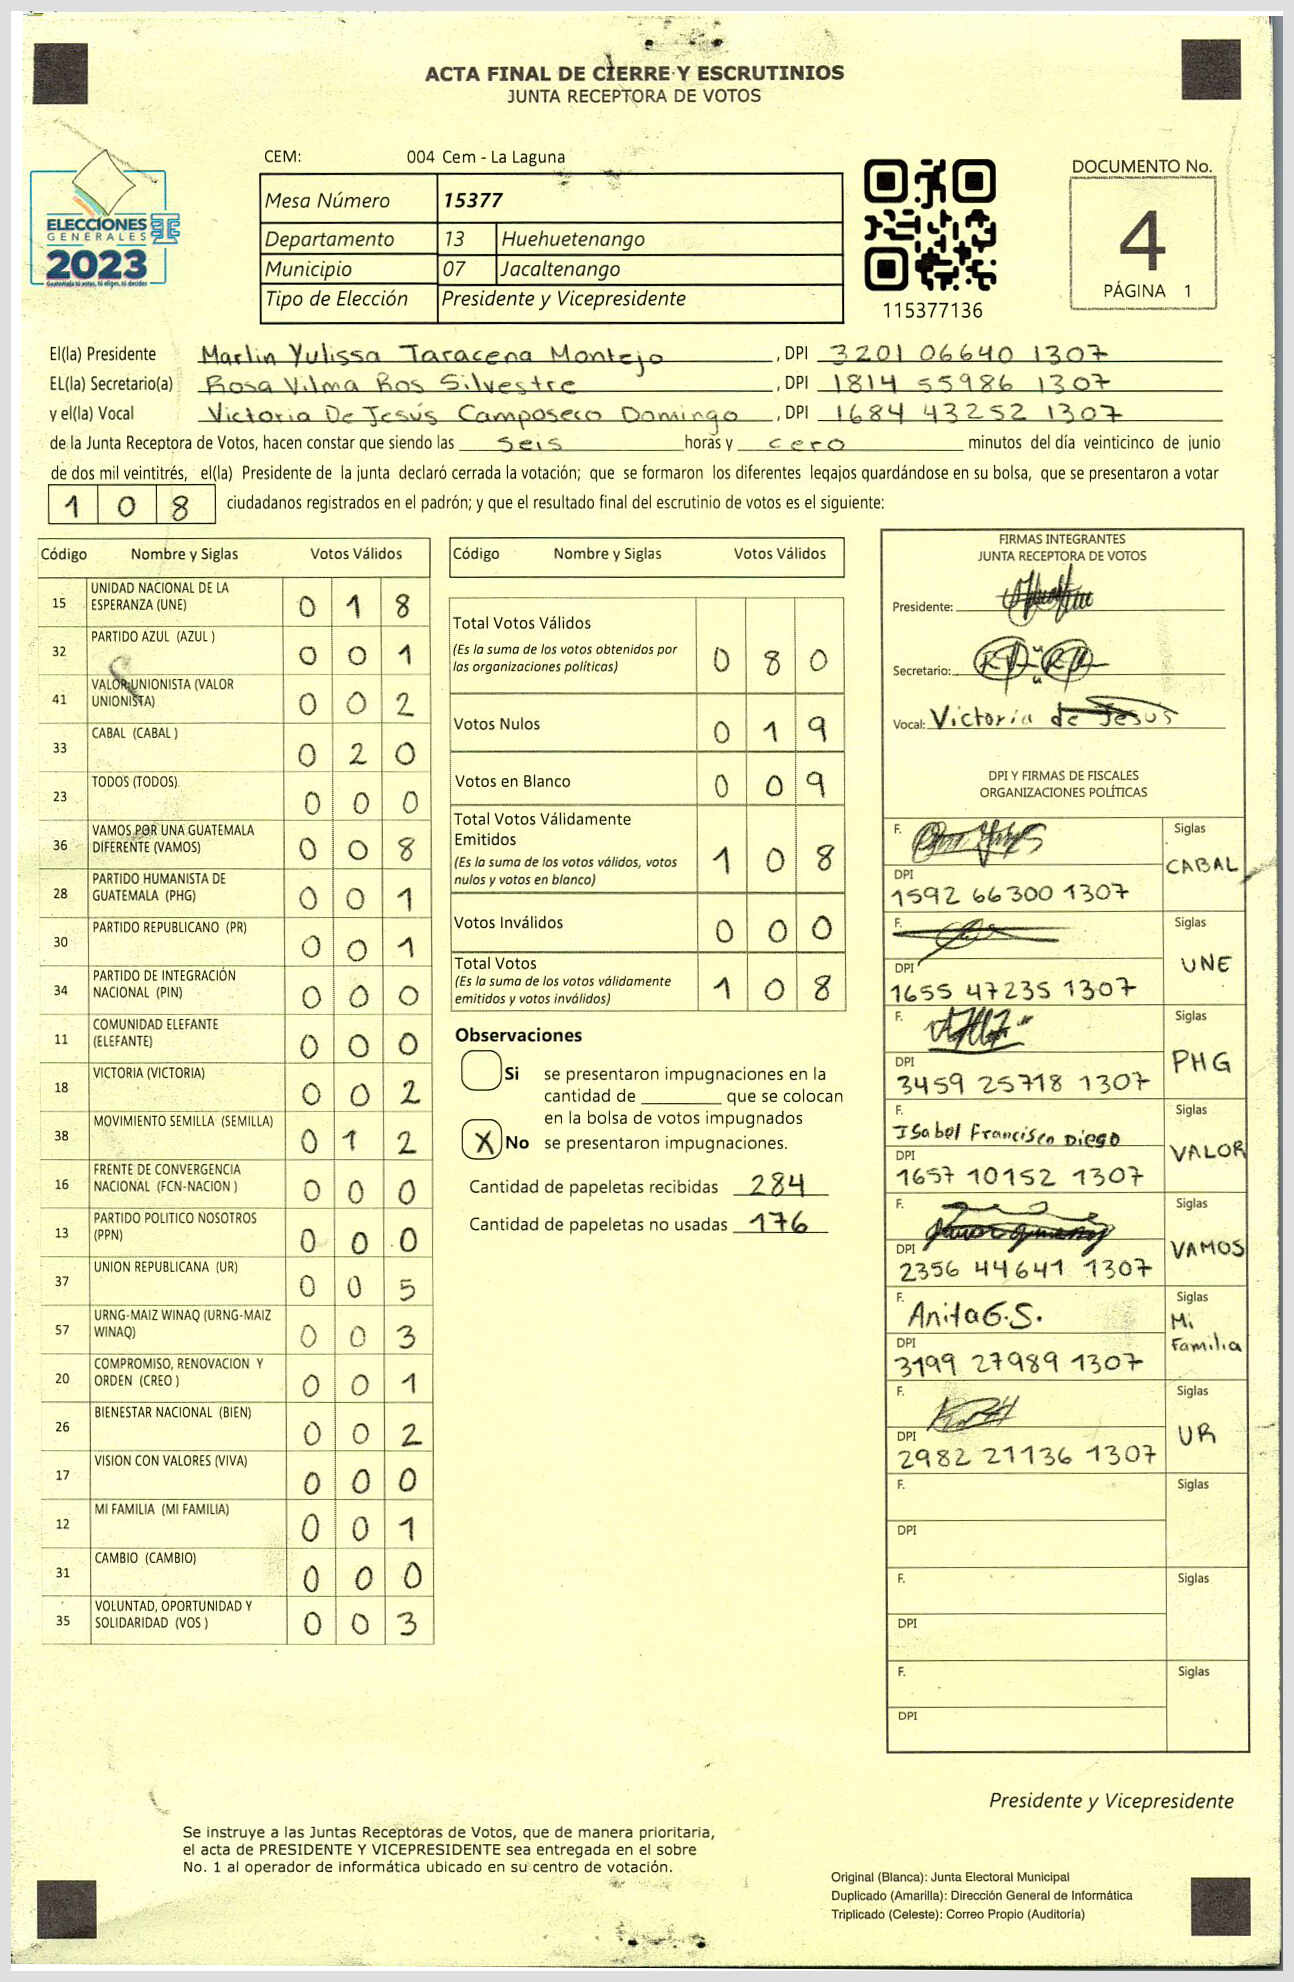 ACTA FINAL DE CIERRE Y ESCRUTINIOS
JUNTA RECEPTORA DE VOTOS
CEM: 004 Cem - La Laguna
ELECCIONES
GENERALES
2023
Guatemala tú votas, tú eliges, tú decides
Mesa Número 15377
Departamento 13 Huehuetenango
Municipio 07 Jacaltenango
Tipo de Elección Presidente y Vicepresidente
115377136
DOCUMENTO No.
4
PÁGINA 1
El(la) Presidente Marlin Yulissa Taracena Montejo, DPI 3201 06640 1307
EL(la) Secretario(a) Rosa Vilma Ros Silvestre, DPI 1814 55986 1307
y el(la) Vocal Victoria De Jesús Camposeco Domingo, DPI 1684 43252 1307
de la Junta Receptora de Votos, hacen constar que siendo las seis horas y cero minutos del día veinticinco de junio
de dos mil veintitrés, el(la) Presidente de la junta declaró cerrada la votación; que se formaron los diferentes legajos guardándose en su bolsa, que se presentaron a votar
108 ciudadanos registrados en el padrón; y que el resultado final del escrutinio de votos es el siguiente:
Código Nombre y Siglas Votos Válidos
15 UNIDAD NACIONAL DE LA
ESPERANZA (UNE) 0 1 8
32 PARTIDO AZUL (AZUL ) 0 0 1
41 VALOR UNIONISTA (VALOR
UNIONISTA) 0 0 2
33 CABAL (CABAL ) 0 2 0
23 TODOS (TODOS) 0 0 0
36 VAMOS POR UNA GUATEMALA
DIFERENTE (VAMOS) 0 0 8
28 PARTIDO HUMANISTA DE
GUATEMALA (PHG) 0 0 1
30 PARTIDO REPUBLICANO (PR) 0 0 1
34 PARTIDO DE INTEGRACIÓN
NACIONAL (PIN) 0 0 0
11 COMUNIDAD ELEFANTE
(ELEFANTE) 0 0 0
18 VICTORIA (VICTORIA) 0 0 2
38 MOVIMIENTO SEMILLA (SEMILLA) 0 1 2
16 FRENTE DE CONVERGENCIA
NACIONAL (FCN-NACION ) 0 0 0
13 PARTIDO POLITICO NOSOTROS
(PPN) 0 0 0
37 UNION REPUBLICANA (UR) 0 0 5
57 URNG-MAIZ WINAQ (URNG-MAIZ
WINAQ) 0 0 3
20 COMPROMISO, RENOVACION Y
ORDEN (CREO ) 0 0 1
26 BIENESTAR NACIONAL (BIEN) 0 0 2
17 VISION CON VALORES (VIVA) 0 0 0
12 MI FAMILIA (MI FAMILIA) 0 0 1
31 CAMBIO (CAMBIO) 0 0 0
35 VOLUNTAD, OPORTUNIDAD Y
SOLIDARIDAD (VOS ) 0 0 3
Código Nombre y Siglas Votos Válidos
Total Votos Válidos
(Es la suma de los votos obtenidos por
las organizaciones políticas) 0 8 0
Votos Nulos 0 1 9
Votos en Blanco 0 0 9
Total Votos Válidamente
Emitidos
(Es la suma de los votos válidos, votos
nulos y votos en blanco) 1 0 8
Votos Inválidos 0 0 0
Total Votos
(Es la suma de los votos válidamente
emitidos y votos inválidos) 1 0 8
Observaciones
Si se presentaron impugnaciones en la
cantidad de ________ que se colocan
en la bolsa de votos impugnados
X No se presentaron impugnaciones.
Cantidad de papeletas recibidas 284
Cantidad de papeletas no usadas 176
FIRMAS INTEGRANTES
JUNTA RECEPTORA DE VOTOS
Presidente:
Secretario:
Vocal: Victoria de Jesus
DPI Y FIRMAS DE FISCALES
ORGANIZACIONES POLÍTICAS
F. Siglas
CABAL
DPI
1592 66300 1307
F. Siglas
UNE
DPI
1655 47235 1307
F. Siglas
PHG
DPI
3459 25718 1307
F. Siglas
Isabel Francisco Diego
VALOR
DPI
1657 10152 1307
F. Siglas
VAMOS
DPI
2356 44641 1307
F. Siglas
Anita G.S.
Mi
Familia
DPI
3199 27989 1307
F. Siglas
UR
DPI
2982 21136 1307
F. Siglas
DPI
F. Siglas
DPI
F. Siglas
DPI
Presidente y Vicepresidente
Se instruye a las Juntas Receptoras de Votos, que de manera prioritaria,
el acta de PRESIDENTE Y VICEPRESIDENTE sea entregada en el sobre
No. 1 al operador de informática ubicado en su centro de votación.
Original (Blanca): Junta Electoral Municipal
Duplicado (Amarilla): Dirección General de Informática
Triplicado (Celeste): Correo Propio (Auditoría)